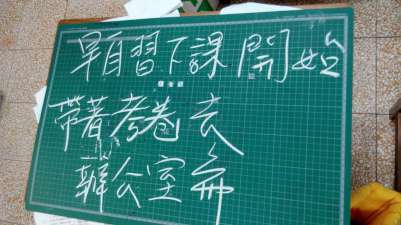 早自習下課開始
帶著考卷去
辦公室